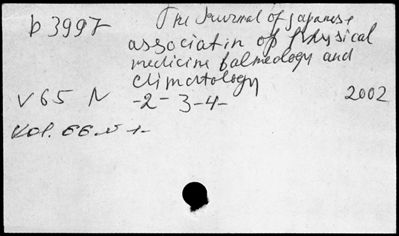 b 3997
The Journal of Japanese
associatin of physical
medicine balneology and
climatology
V65 N -2- 3-4- 2002
Vol. 66. N 1-